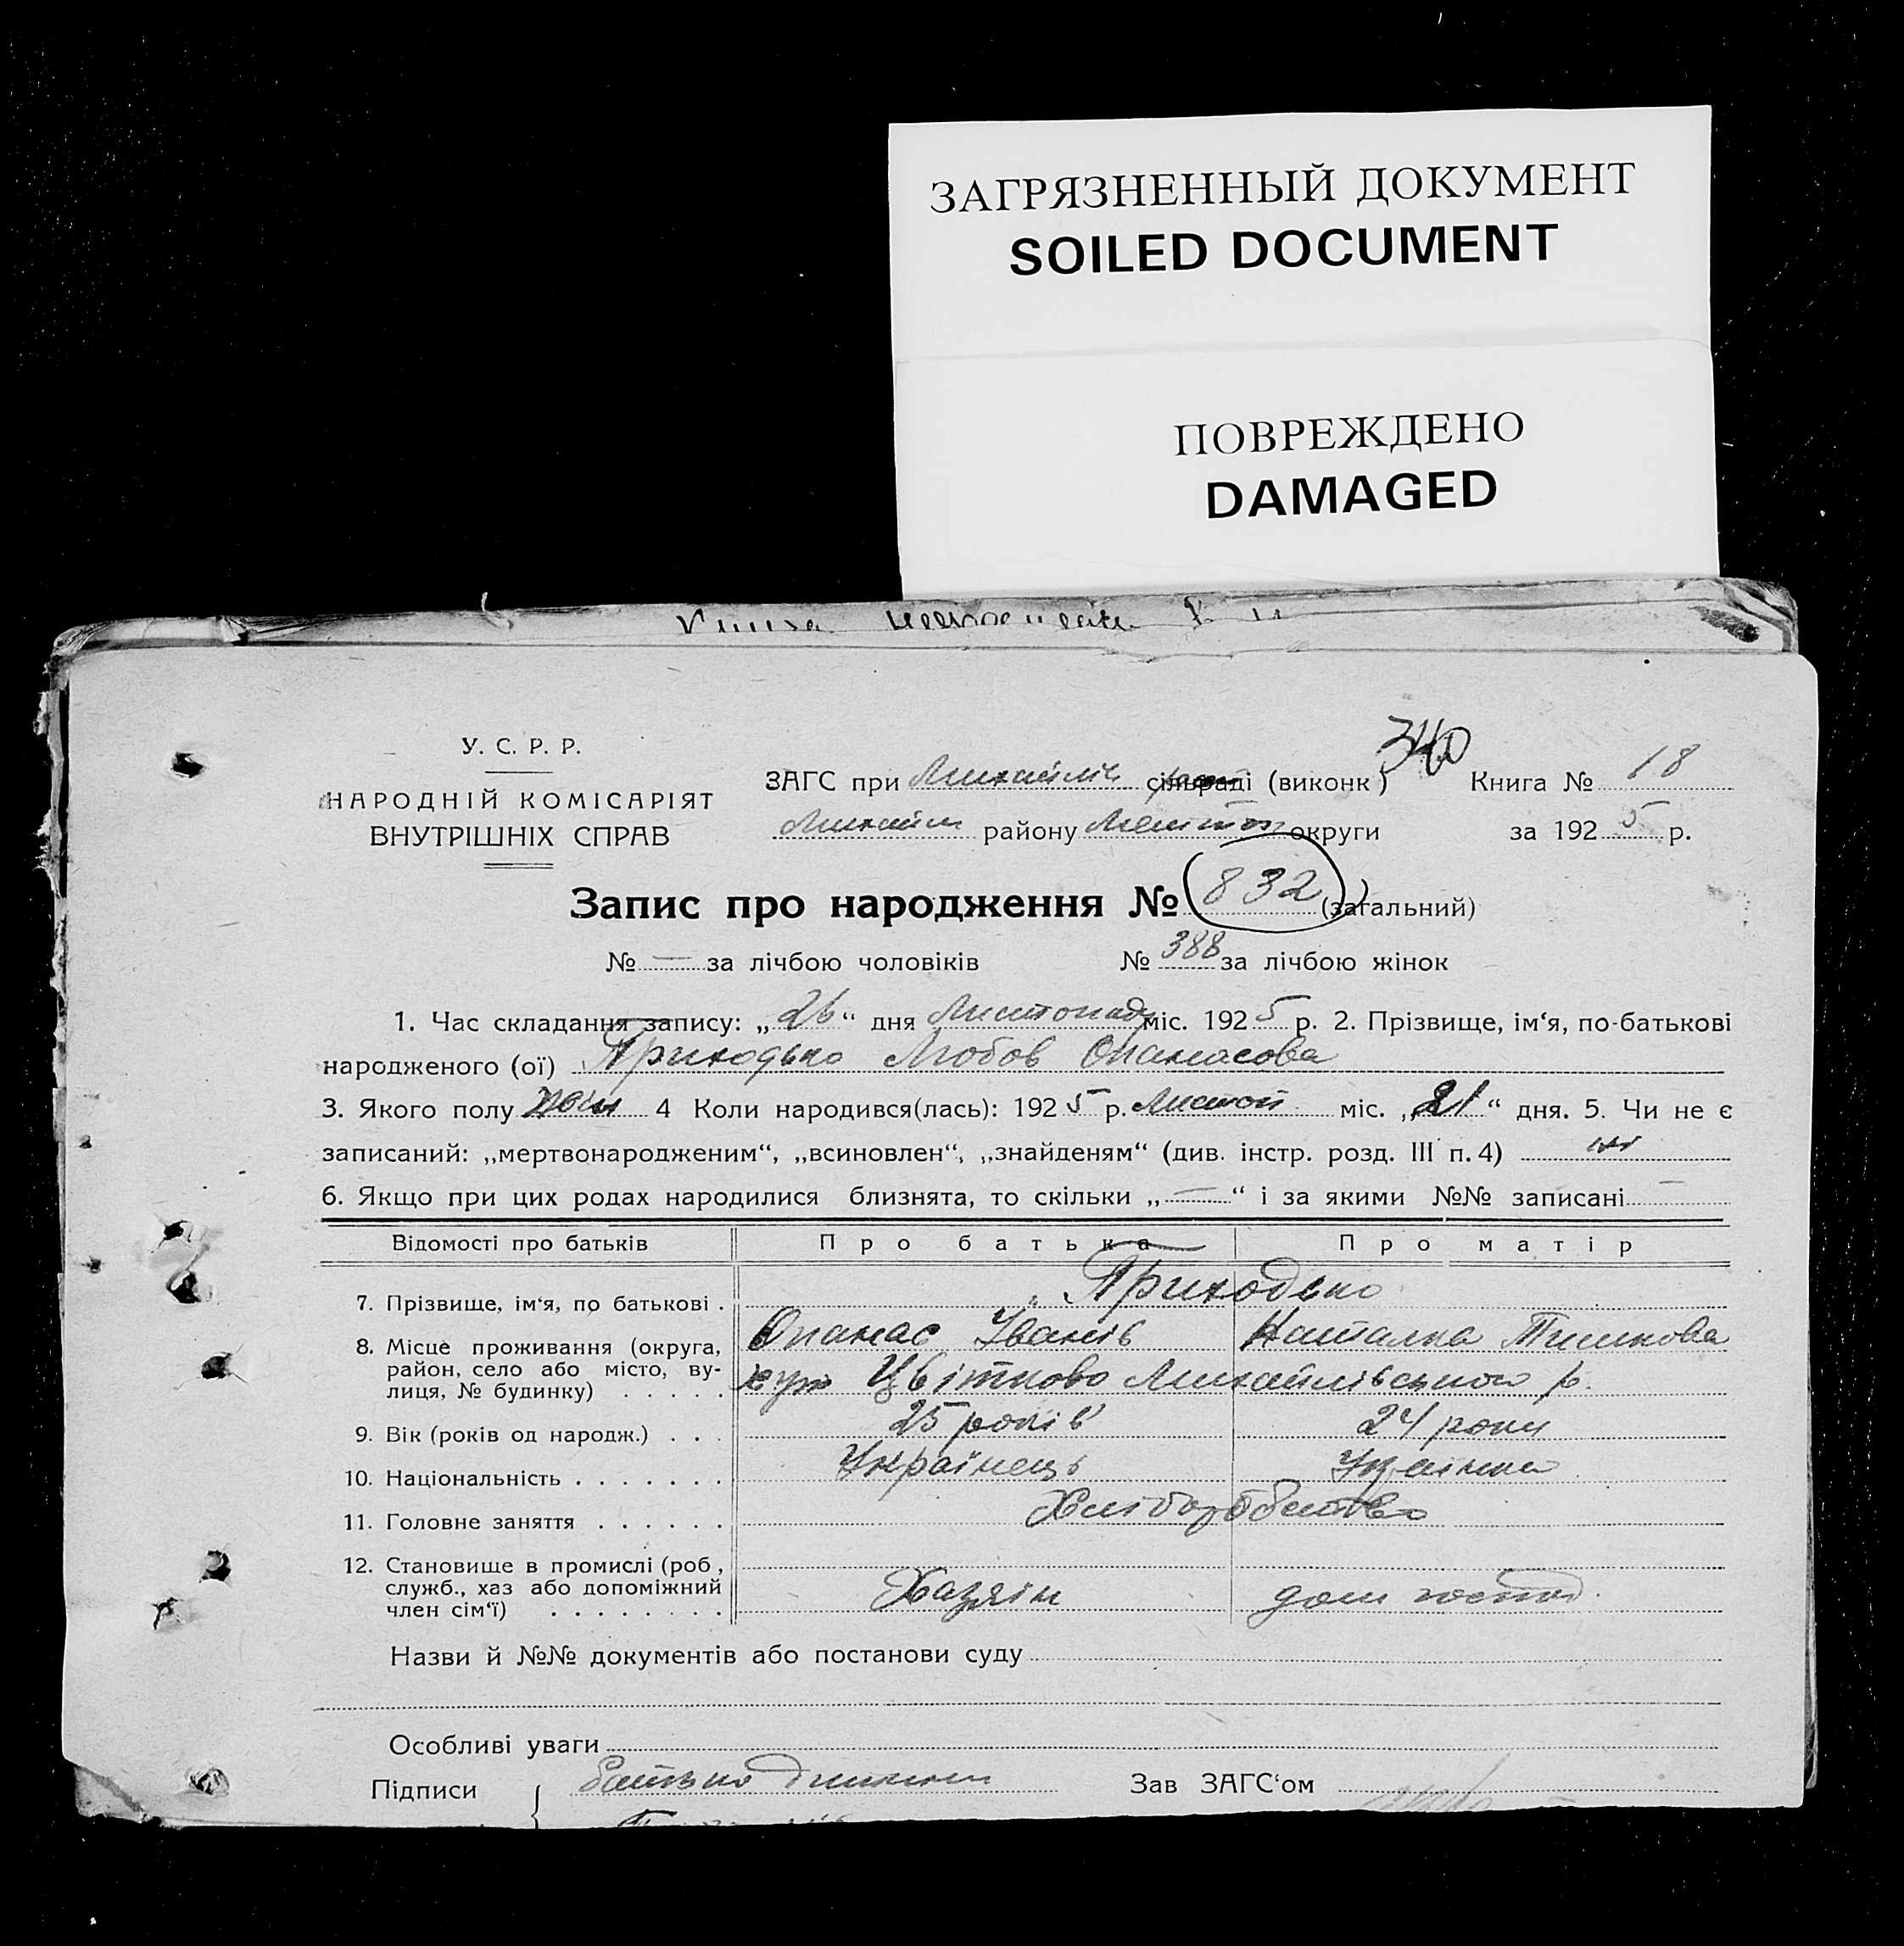 ЗАГРЯЗНЕННЫЙ ДОКУМЕНТ
SOILED DOCUMENT
ПОВРЕЖДЕНО
DAMAGED
340
У. С. Р. Р.
НАРОДНІЙ КОМІСАРІЯТ
ВНУТРІШНІХ СПРАВ
ЗАГС при Михайлів сільраді (виконк ) Книга № 18
Михайл району Меліт округи за 1925 р.
Запис про народження № 832 (загальний)
№ — за лічбою чоловіків № 388 за лічбою жінок
1. Час складання запису: „26“ дня Листопаду міс. 1925 р. 2. Прізвище, ім‘я, по-батькові
народженого (ої) Приходько Любов Опанасова
3. Якого полу жін 4 Коли народився(лась): 1925 р. Листоп міс. „21“ дня. 5. Чи не є
записаний: „мертвонародженим“, „всиновлен“, „знайденям“ (див. інстр. розд. III п. 4) ні
6. Якщо при цих родах народилися близнята, то скільки „—“ і за якими №№ записані —
Відомості про батьків Про батька Про матір
7. Прізвище, ім‘я, по батькові . Приходько
Опанас Іванів Наталка Тишкова
8. Місце проживання (округа, район, село або місто, ву-
лиця, № будинку) . . . . . хут Цвітково Михайлівського р.
9. Вік (років од народж.) . . . 25 років 24 роки
10. Національність . . . . . . . Українець Українка
11. Головне заняття . . . . . . Хліборобство
12. Становище в промислі (роб,
служб., хаз або допоміжний
член сім‘ї) . . . . . . . . Хазяїн дом господ.
Назви й №№ документів або постанови суду
Особливі уваги
Підписи { Батько Зав ЗАГС‘ом